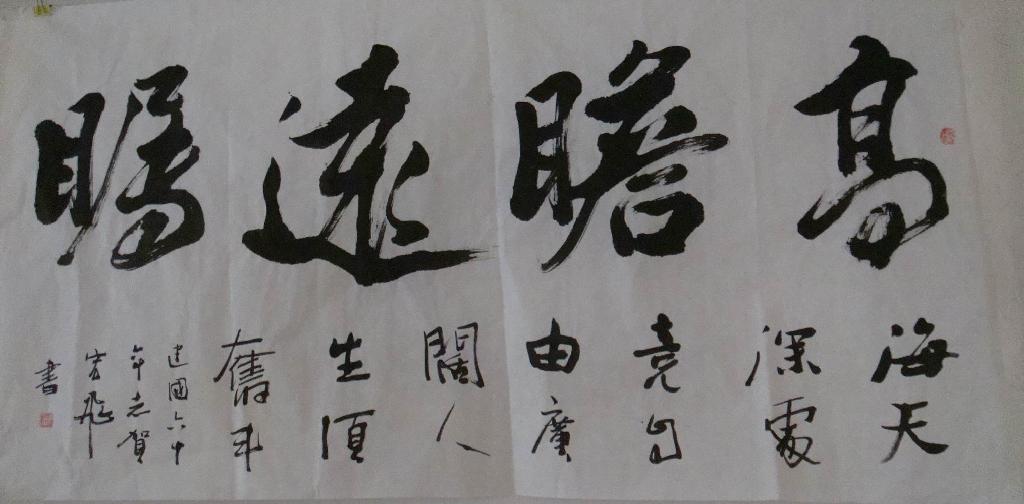 高瞻遠瞩
海天
深處
竞自
由廣
闊人
生須
奮斗
建國六十
年志賀
宏飛
書